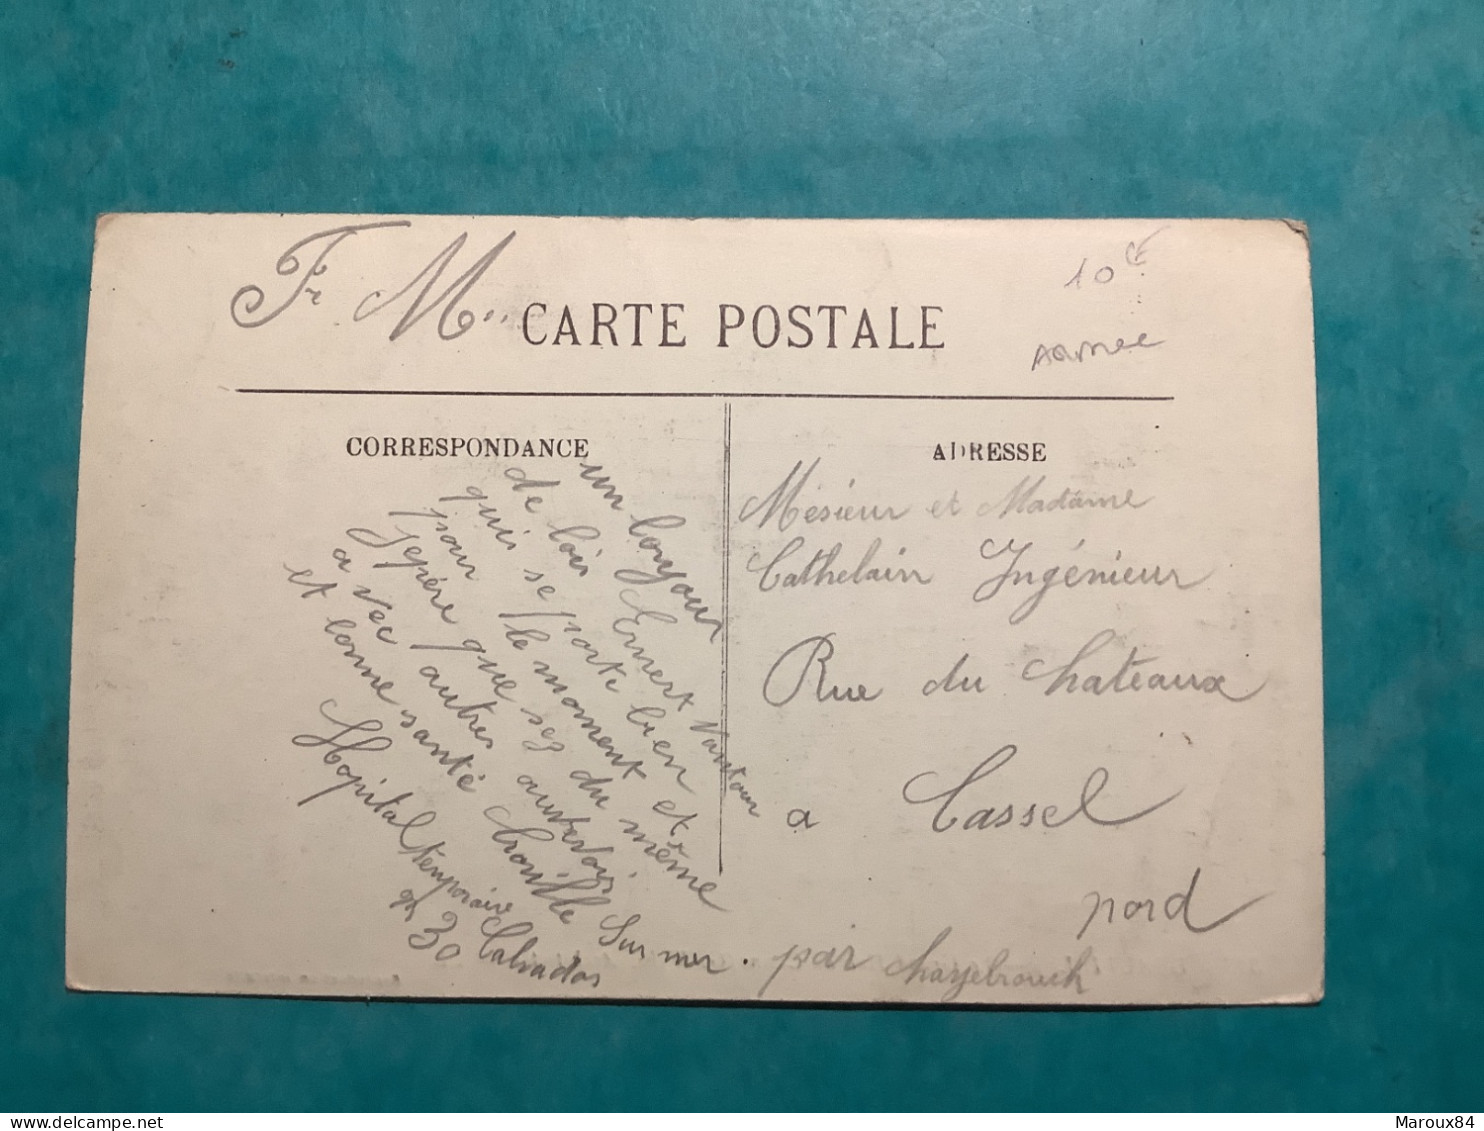 Fr M..
CARTE POSTALE
10 ce
Armee
CORRESPONDANCE
un bonjour
de lois Ernest Vantour
qui se porte bien
pour le moment et
jespére que sez du même
a vec autres autrvois
et bonne santé Trouville Sur mer.
Hopital temporaire Calvados
n 30
ADRESSE
Mésieur et Madame
Cathelain Ingénieur
Rue du Chateaux
a Cassel
nord
par hazebrouck
Maroux84